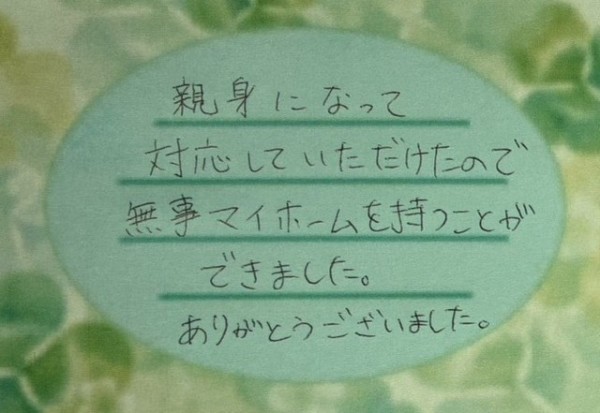 親身になって
対応していただけたので
無事マイホームを持つことが
できました。
ありがとうございました。